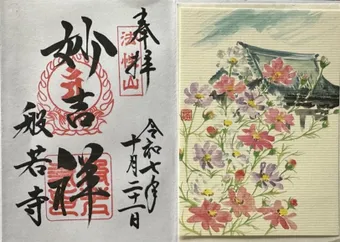 奉拝
法性山
妙吉祥
般若寺
令和七年
十月二十一日